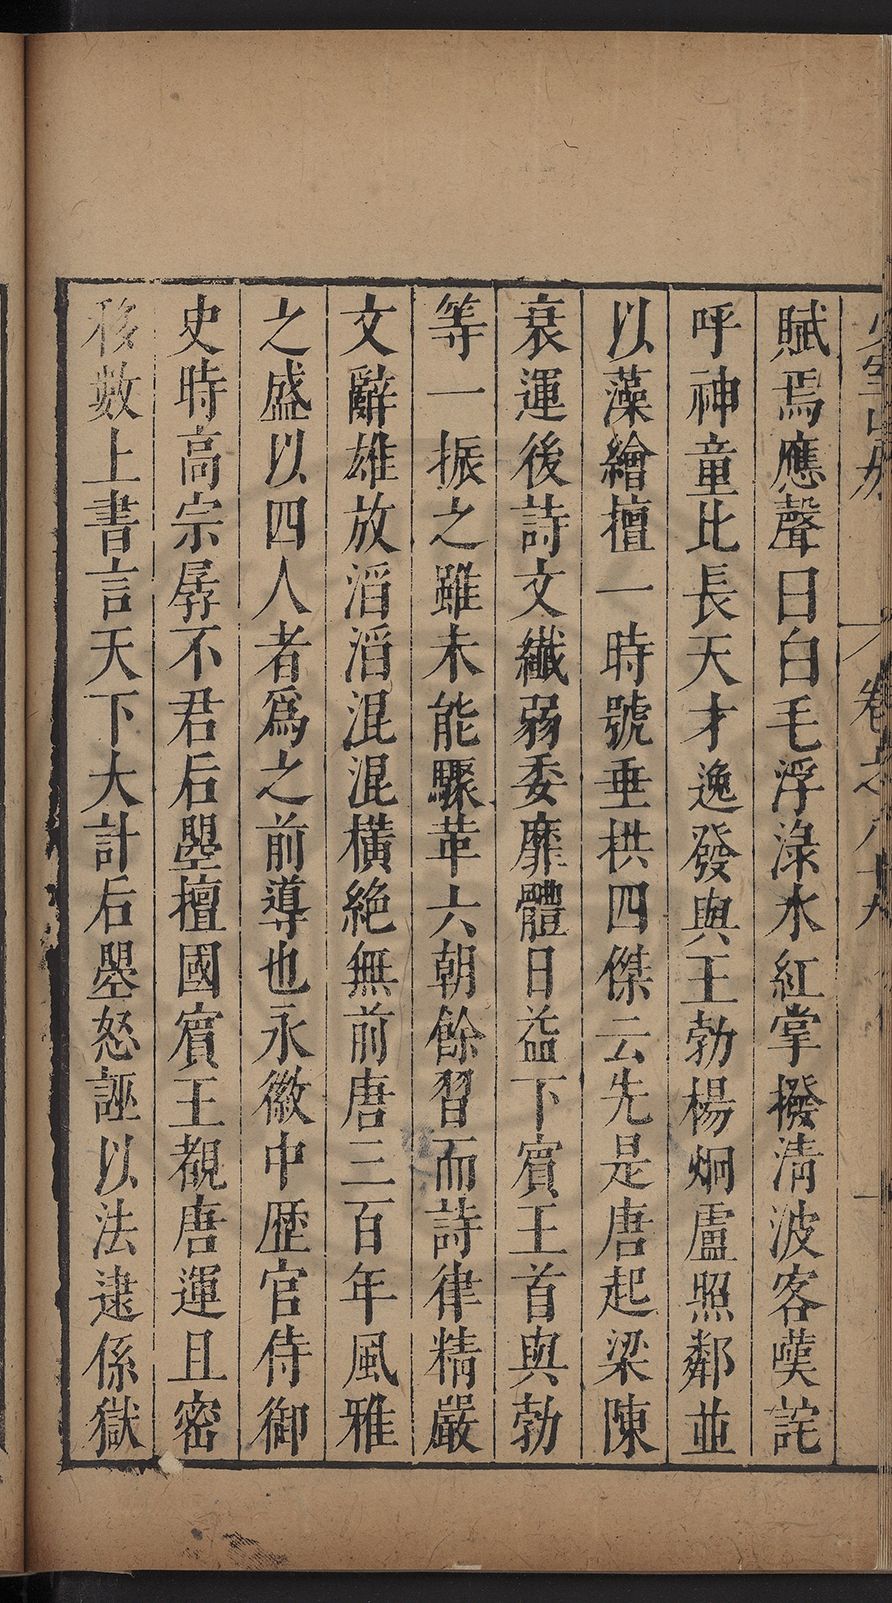 少室山房 卷之八十九
賦焉應聲曰白毛浮淥水紅掌撥淸波客嘆詫
呼神童比長天才逸發與王勃楊烱盧照鄰並
以藻繪擅一時號垂拱四傑云先是唐起梁陳
衰運後詩文纖弱委靡體日益下賓王首與勃
等一振之雖未能驟革六朝餘習而詩律精嚴
文辭雄放滔滔混混橫絶無前唐三百年風雅
之盛以四人者爲之前導也永徽中歷官侍御
史時高宗孱不君后曌擅國賓王覩唐運且密
移數上書言天下大計后曌怒誣以法逮係獄